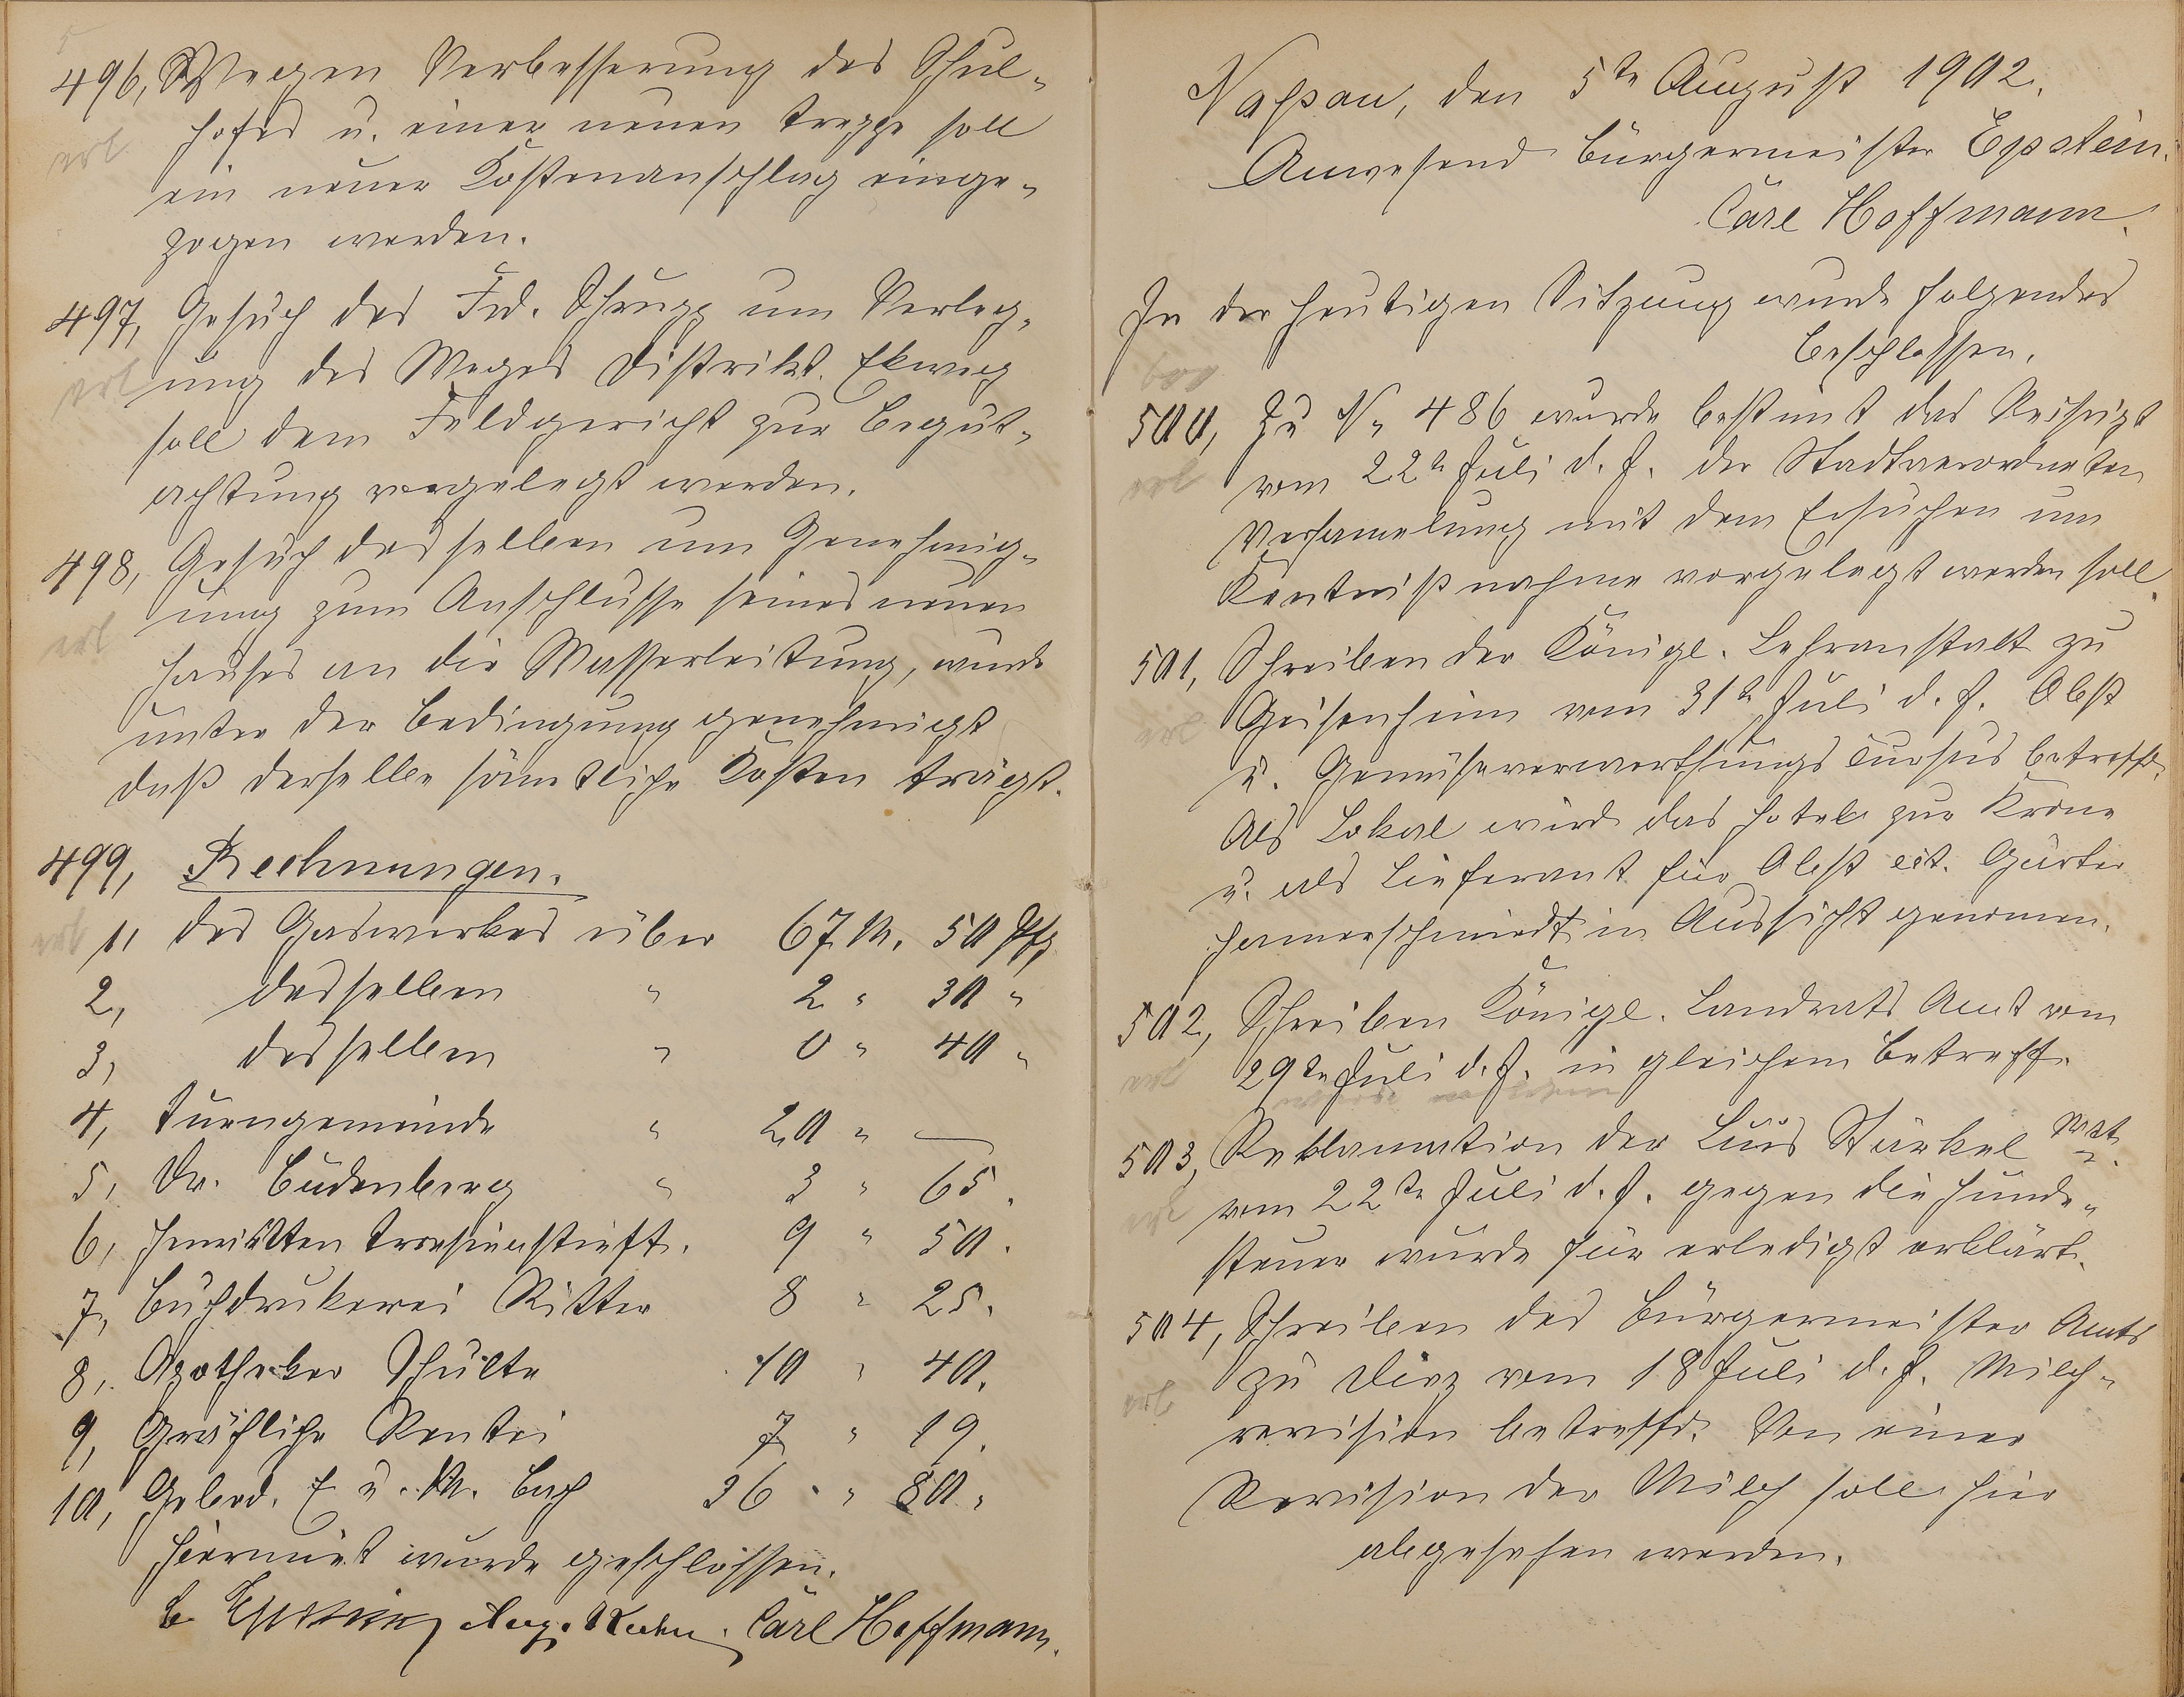 496, Wegen Verbesserung des Schul-
hofes u. einer neuen Treppe soll
erl
ein neuer Kostenanschlag einge-
zogen werden.
497, Gesuch des Frd. Schrupp um Verleg-
erl
ung des Weges Distrikt. Ekweg
soll dem Feldgericht zur Begut-
achtung vorgelegt werden.
498, Gesuch desselben um Genehmig-
ung zum Anschlusse seines neuen
erl
Hauses an die Wasserleitung, wurde
unter der Bedingung genehmigt
daß derselbe sämtliche Kosten trägt.
499, Rechnungen.
erl
1, des Gaswerkes über 67 M. 50 Pfg
2, desselben " 2 " 30 "
3, desselben " 0 " 40 "
4, Turngemeinde " 20 " —
5, Dr. Budenberg " 3 " 65.
6, Henrietten Theresienstift. 9 " 50.
7, Buchdrukerei Ritter 8 " 25.
8, Apotheker Schulte 10 " 40.
9, Gräfliche Rentei 7 " 19.
10, Gebrd. E u. M. Bach 36 " 80.
Hiermit wurde geschlossen.
Epstein Aug. Kuhn. Carl Hoffmann.
Naßau, den 5te August 1902.
Anwesend Bürgermeister Epstein.
Carl Hoffmann.
In der heutigen Sitzung wurde folgendes
beschlossen.
500, Zu N. 486 wurde bestimt das Reskript
erl
vom 22te Juli d. J. der Stadtverordneten
Versamelung mit dem Ersuchen um
Kentnißnahme vorgelegt werden soll.
501, Schreiben der Königl. Lehranstalt zu
erl
Geisenheim vom 31te Juli d. J. Obst
u. Gemüseverwerthungs Cursus betreffd.
Als Lokal wird das Hotel zur Krone
u. als Lieferant für Obst ect. Gärtner
Hamerschmidt in Aussicht genomen.
502, Schreiben Königl. Landrats Amt vom
erl
29te Juli d. J. in gleichem Betreff.
503, Reklamation der Luis Stärkel Wwe.
erl
vom 22te Juli d. J. gegen die Hunde-
steuer wurde für erledigt erklärt.
504, Schreiben des Bürgermeister Amts
zu Diez vom 18 Juli d. J. Milch-
erl
revision betreffd. Von einer
Revision der Milch soll hier
abgesehen werden.